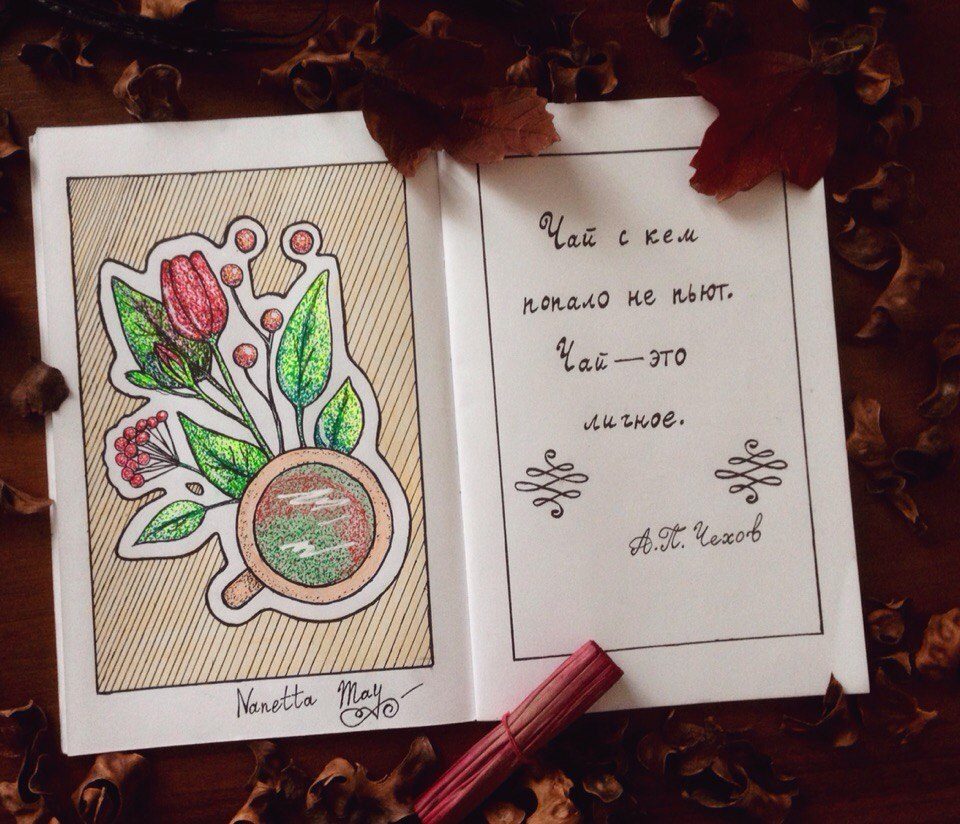 Nanetta May
Чай с кем
попало не пьют.
Чай — это
личное.
А.П. Чехов